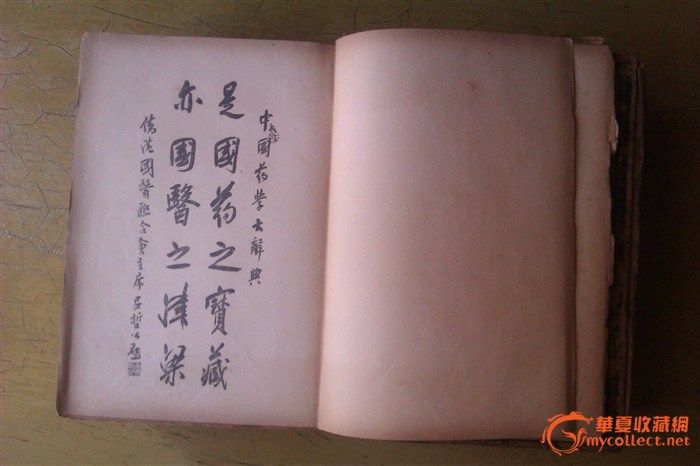 中國药學大辭典
是國药之寶藏
亦國醫之津梁
僑港國醫聯合會主席呂哲公題
華夏收藏網
mycollect.net